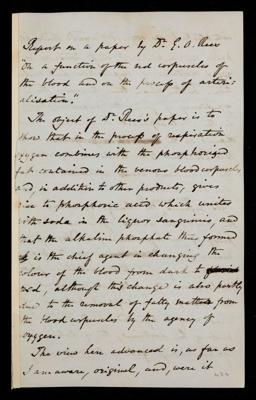 Report on a paper by Dr. G. O. Rees
"On a function of the red corpuscles of
the blood and on the process of arteri-
alisation."
The object of Dr. Rees's paper is to
show that in the process of respiration
oxygen combines with the phosphorized
fat contained in the venous blood corpuscles
and, in addition to other products, gives
rise to phosphoric acid which unites
with soda in the liquor sanguinis and
that the alkaline phosphate thus formed
is the chief agent in changing the
colour of the blood from dark to
red, although this change is also partly
due to the removal of fatty matter from
the blood corpuscles by the agency of
oxygen.
The view here advanced is, as far as
I am aware, original, and, were it